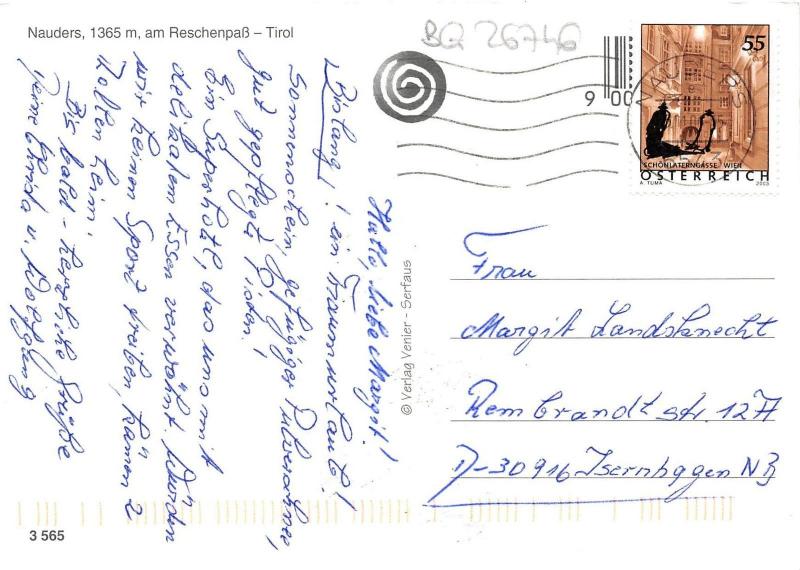 Nauders, 1365 m, am Reschenpaß – Tirol
BQ 26746
9 00
55
SCHÖNLATERNGASSE WIEN
ÖSTERREICH
A. TUMA
2003
Hallo, liebe Margit!
Bislang: ein Traumurlaub!
Sonnenschein, gefügiger Pulverschnee,
gut gepflegte Pisten!
Ein Superhotel, das uns mit
delikatem Essen verwöhnt. Würden
wir keinen Sport treiben, kämen 2
heim!
Bis bald - herzliche Grüße
Deine Christa u. Wolfgang
© Verlag Venier - Serfaus
Frau
Margit Landsknecht
Rembrandtstr. 12A
D-30916 Isernhagen NB
3 565